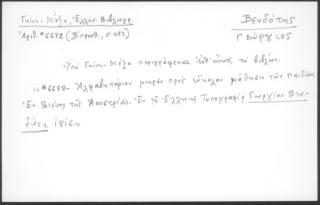 Γκίνη - Μέξα, Ἑλλην. Βιβλιογρ.
Ἀριθ. #6672 (Β΄ προσθ., σ. 473)
Βενδότης
Γεώργιος
Ὑπὸ Γκίνη - Μέξα περιγράφεται τὸ βιβλίον:
« #6672 - Ἀλφαβητάριον μικρὸν πρὸς εὔκολον μάθησιν τῶν παιδίων
Ἐν Βιέννῃ τῆς Αουστρίας. Ἐν τῇ Ἑλληνικῇ Τυπογραφίᾳ Γεωργίου Βεν-
δώτη